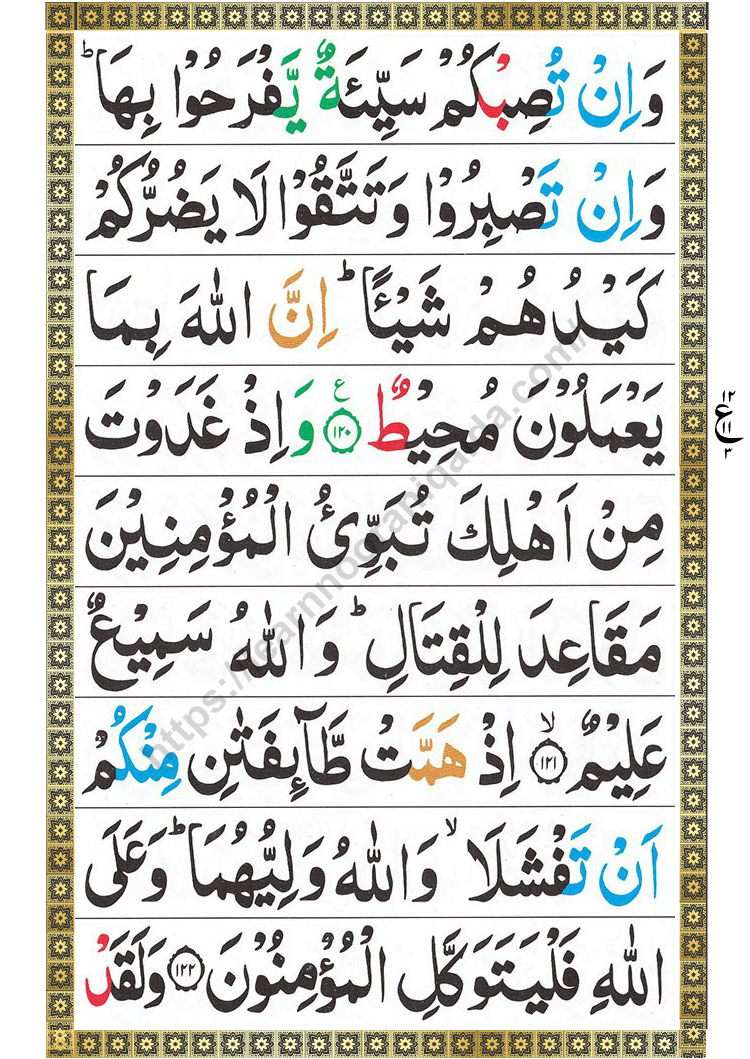 وَاِنْ تُصِبْكُمْ سَیِّئَةٌ یَّفْرَحُوْا بِهَا ؕ
وَاِنْ تَصْبِرُوْا وَتَتَّقُوْا لَا یَضُرُّكُمْ
كَیْدُهُمْ شَیْئًا ؕ اِنَّ اللّٰهَ بِمَا
یَعْمَلُوْنَ مُحِیْطٌ ۧ ﴿۱۲۰﴾ وَاِذْ غَدَوْتَ
مِنْ اَهْلِكَ تُبَوِّئُ الْمُؤْمِنِیْنَ
مَقَاعِدَ لِلْقِتَالِ ؕ وَاللّٰهُ سَمِیْعٌ
عَلِیْمٌ ۙ ﴿۱۲۱﴾ اِذْ هَمَّتْ طَّآئِفَتٰنِ مِنْكُمْ
اَنْ تَفْشَلَا ۙ وَاللّٰهُ وَلِیُّهُمَا ؕ وَعَلَى
اللّٰهِ فَلْیَتَوَكَّلِ الْمُؤْمِنُوْنَ ﴿۱۲۲﴾ وَلَقَدْ
۱۲
ع
۱۱
۳
https://learnnooraniqaida.com/